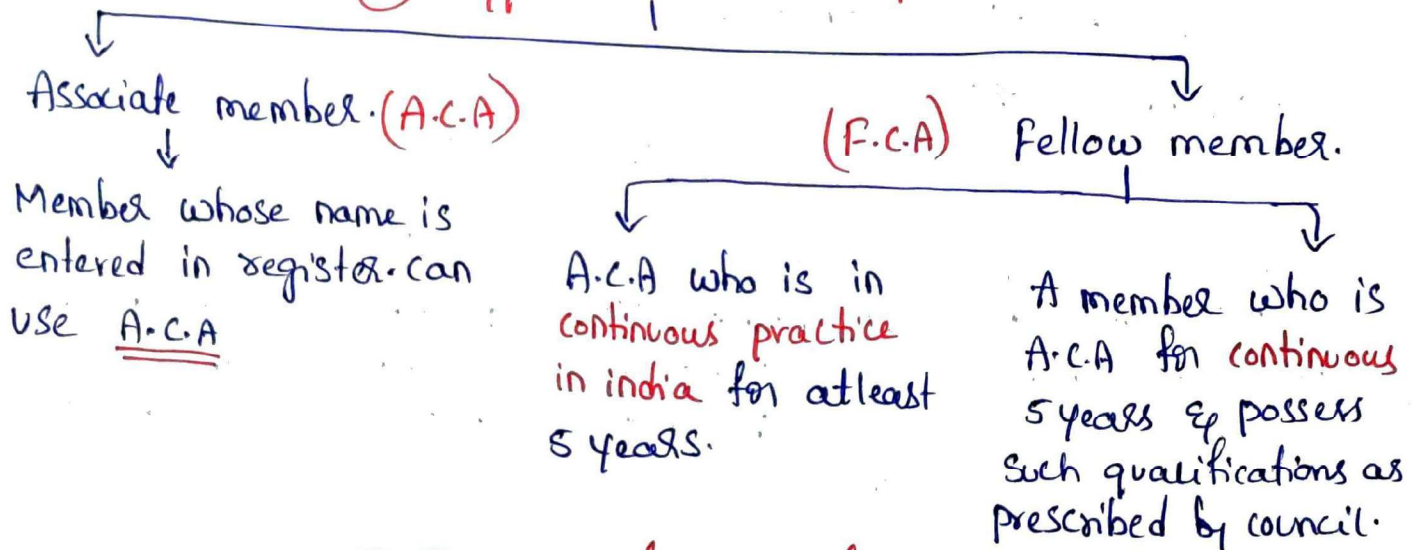 Associate member. (A.C.A)
(F.C.A) Fellow member.
Member whose name is
entered in register. can
use A.C.A
A.C.A who is in
continuous practice
in india for atleast
5 years.
A member who is
A.C.A for continuous
5 years & possess
Such qualifications as
prescribed by council.